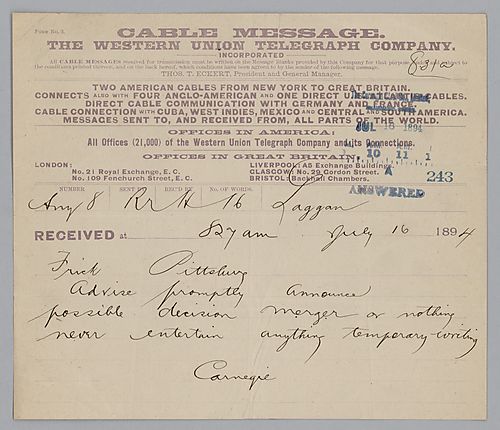 Form No. 3.
CABLE MESSAGE.
THE WESTERN UNION TELEGRAPH COMPANY.
INCORPORATED
All CABLE MESSAGES received for transmission must be written on the Message Blanks provided by this Company for that purpose, subject to
the conditions printed thereon, and on the back hereof, which conditions have been agreed to by the sender of the following message.
THOS. T. ECKERT, President and General Manager.
TWO AMERICAN CABLES FROM NEW YORK TO GREAT BRITAIN.
CONNECTS ALSO WITH FOUR ANGLO-AMERICAN AND ONE DIRECT U.S. ATLANTIC CABLES.
DIRECT CABLE COMMUNICATION WITH GERMANY AND FRANCE.
CABLE CONNECTION WITH CUBA, WEST INDIES, MEXICO AND CENTRAL AND SOUTH AMERICA.
MESSAGES SENT TO, AND RECEIVED FROM, ALL PARTS OF THE WORLD.
JUL 16 1894
OFFICES IN AMERICA:
All Offices (21,000) of the Western Union Telegraph Company and its Connections.
10 11 1
OFFICES IN GREAT BRITAIN:
LONDON:
No. 21 Royal Exchange, E. C.
No. 109 Fenchurch Street, E. C.
LIVERPOOL: A5 Exchange Buildings.
GLASGOW: No. 29 Gordon Street.
BRISTOL: Backhall Chambers.
A
243
ANSWERED
NUMBER SENT BY REC'D BY No. OF WORDS.
8 16 Laggan
RECEIVED at 827 am July 16 1894
Frick Pittsburg
Advise promptly announce
possible decision merger or nothing
never entertain anything temporary writing
Carnegie